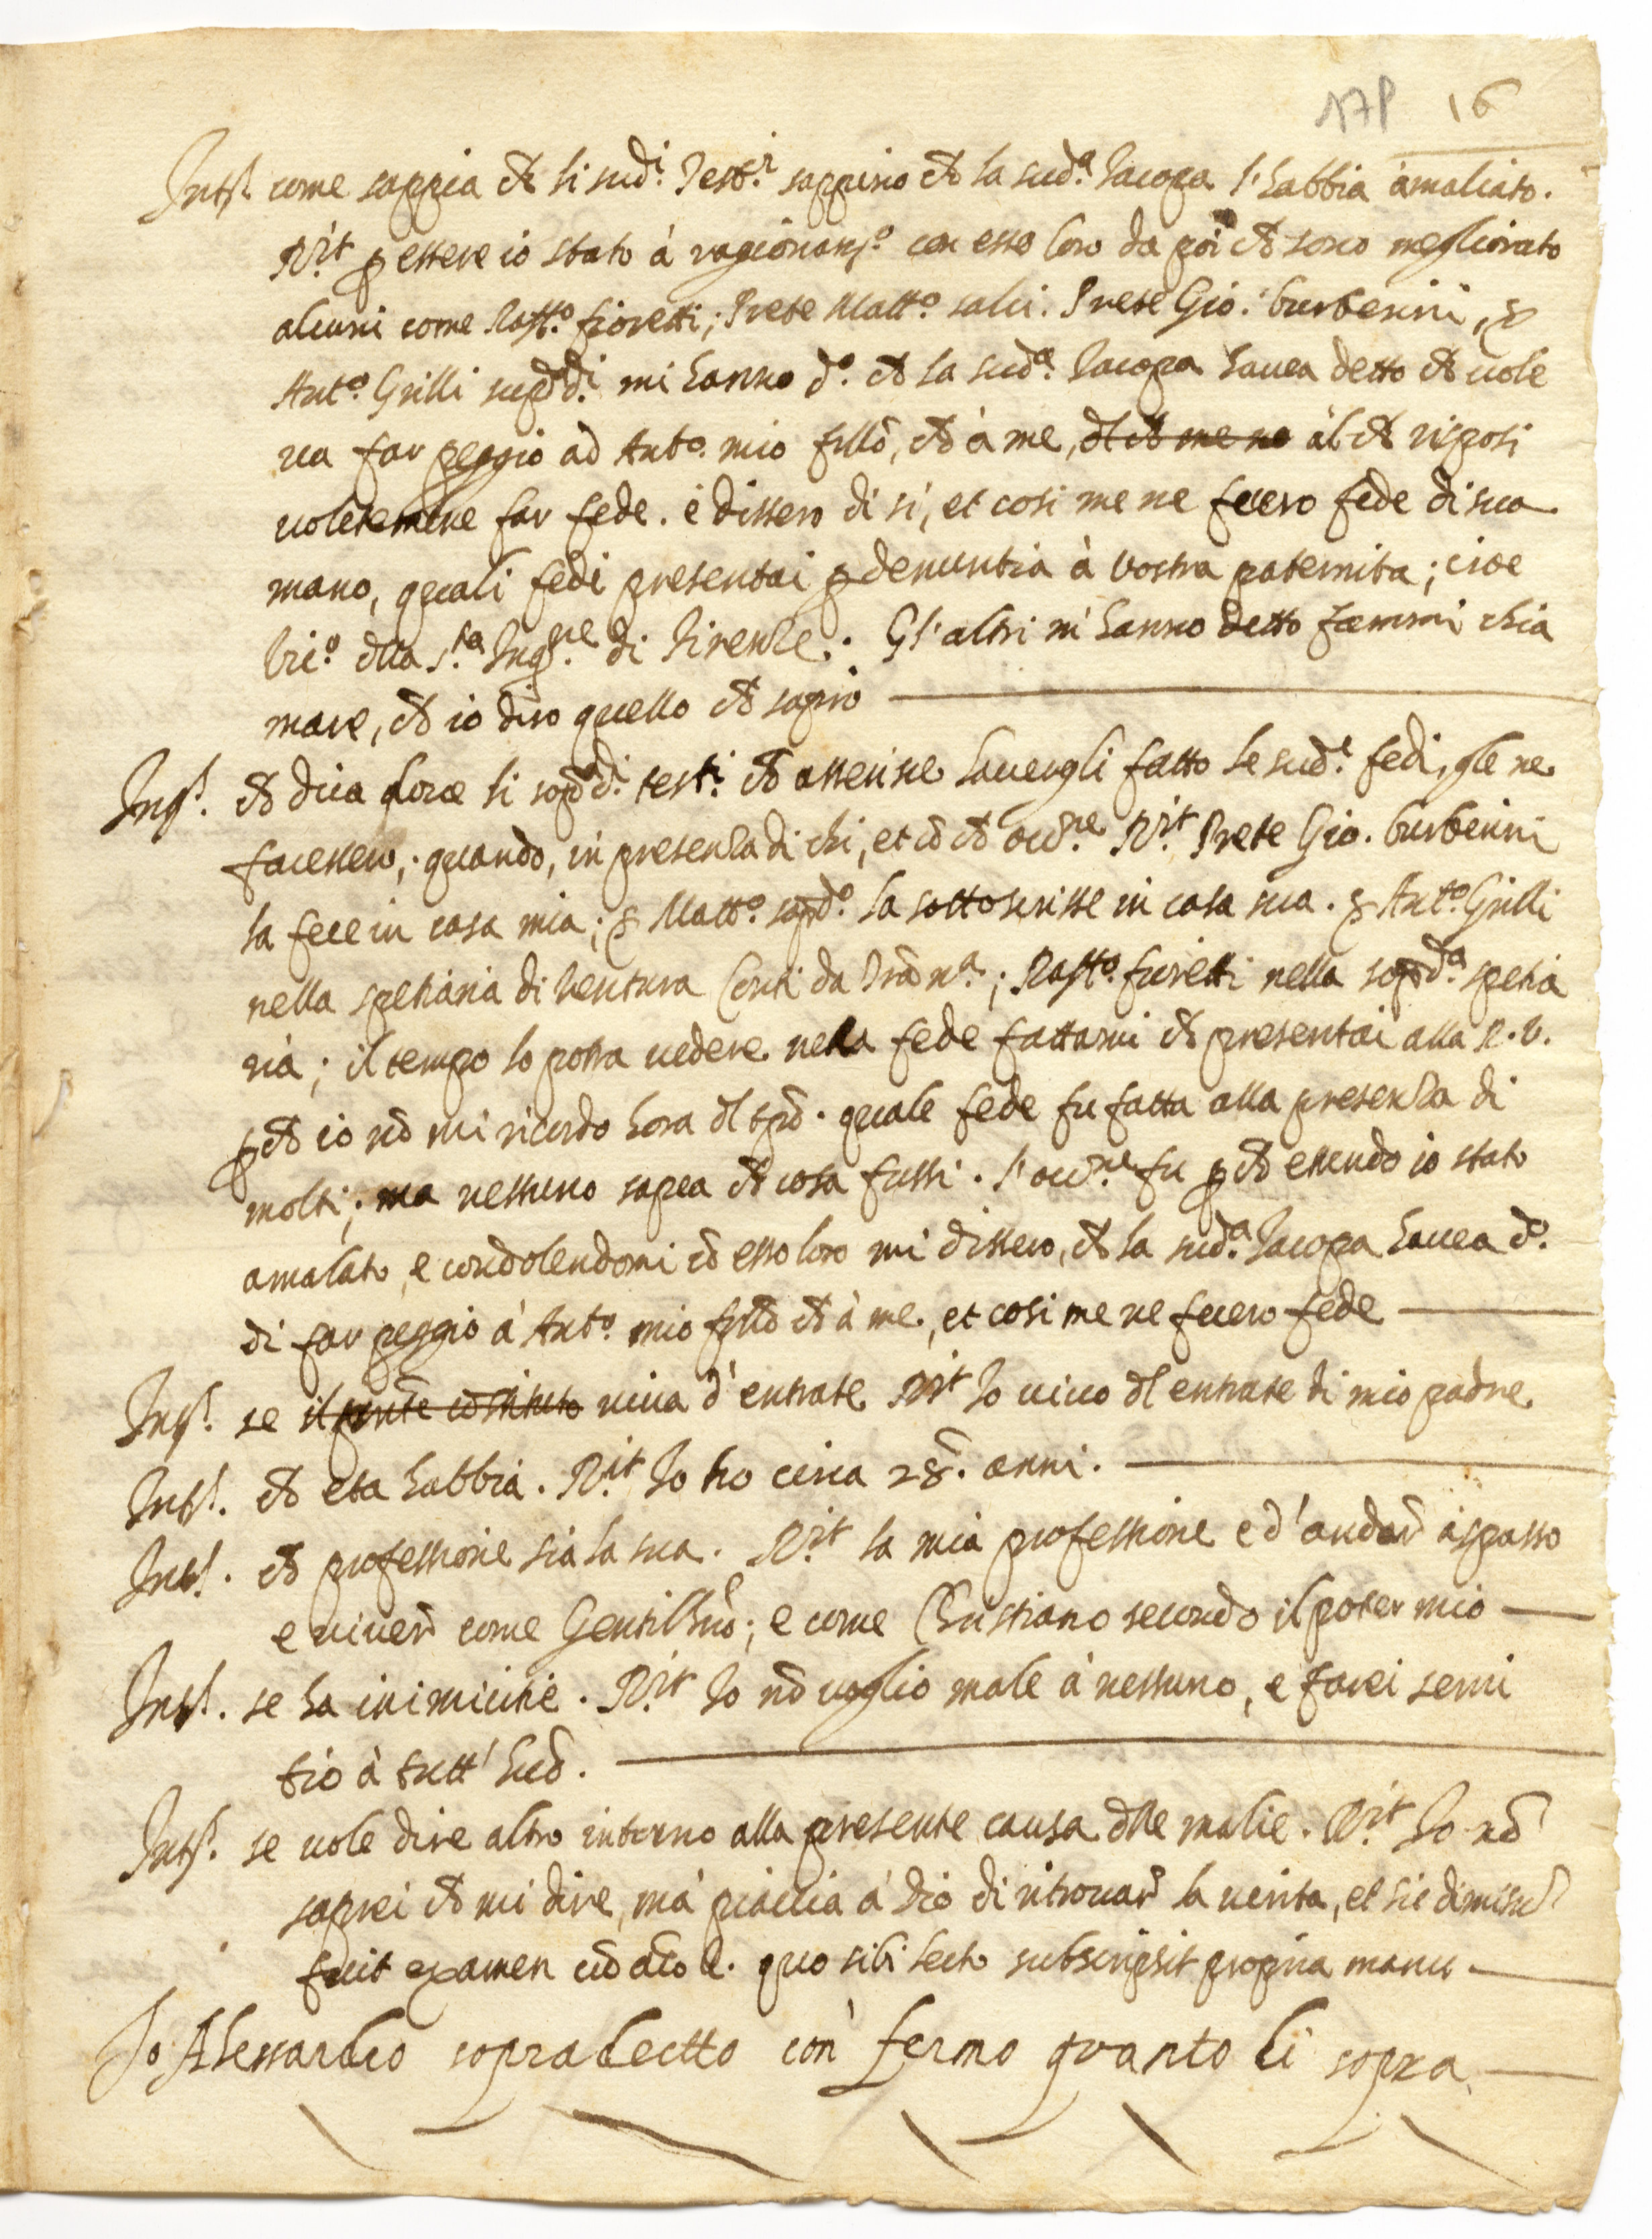 178 16
Int.s come sappia ch li sud.i Test.i sappino ch la sud.a Jacopa l'habbia amaliato.
R.it p essere io stato à ragionam.o con esso loro da poi ch sono megliorato
alcuni come Raff.o fioretti; Prete Matt.o salvi. Prete Gio: burberini, &
Ant.o Grilli sup.di mi hanno d.o ch la sud.a Jacopa havea detto ch vole
va far peggio ad Ant.o mio fillo, ch à me, al ch risposi
voletemene far fede. e dissero di si, et cosi me ne fecero fede di sua
mano, quali fedi presentai p denuntia à vostra paternita; cioe
Vic.o dlla S.ta Inq.ne di firenze. Gl'altri m'hanno detto fammi chia
mare, ch io diro quello ch saprò
Int.s ch dica dove li sop.di test.i ch asserisce havergli fatto le sud.e fedi, gle ne
facessero, quando, in presenza di chi, et cō ch occ.ne R.it Prete Gio. burberini
la fece in casa mia; & Matt.o sop.do la sottoscrisse in casa sua. & Ant.o Grilli
nella spetiaria di Ventura Conti da ; Raff.o fioretti nella sop.da spetia
ria; il tempo lo potra vedere nella fede fattami ch presentai alla R.V.
p ch io nō mi ricordo hora dl tpō. quale fede fu fatta alla presenza di
molti; ma nessuno sapea ch cosa fussi. l'occ.ne fu p ch essendo io stato
amalato, e condolendomi cō esso loro mi dissero, ch la sud.a Jacopa havea d.o
di far peggio à Ant.o mio fyllō ch à me, et cosi me ne fecero fede
Int.s se il pnte cōstituto viva d'entrate R.it Io vivo dl entrate di mio padre
Int.s ch eta habbia. R.it Io ho circa 28. anni.
Int.s ch professione sia la sua. R.it la mia professione e d'andar à spasso
e viver come Gentilhuō; e come Christiano secondo il poter mio
Int.s se ha inimicitie. R.it Io nō voglio male à nessuno, e farei servi
tio à tutt'huō.
Int.s se vole dire altro intorno alla presente causa dlle malie. R.it Io nō
saprei ch mi dire, mà piaccia à Dio di ritrovar la verita, et sic dimissū
fuit examen quo sibi lecto subscripsit propria manu
Io Alessandro sopradectto con fermo quanto di sopra